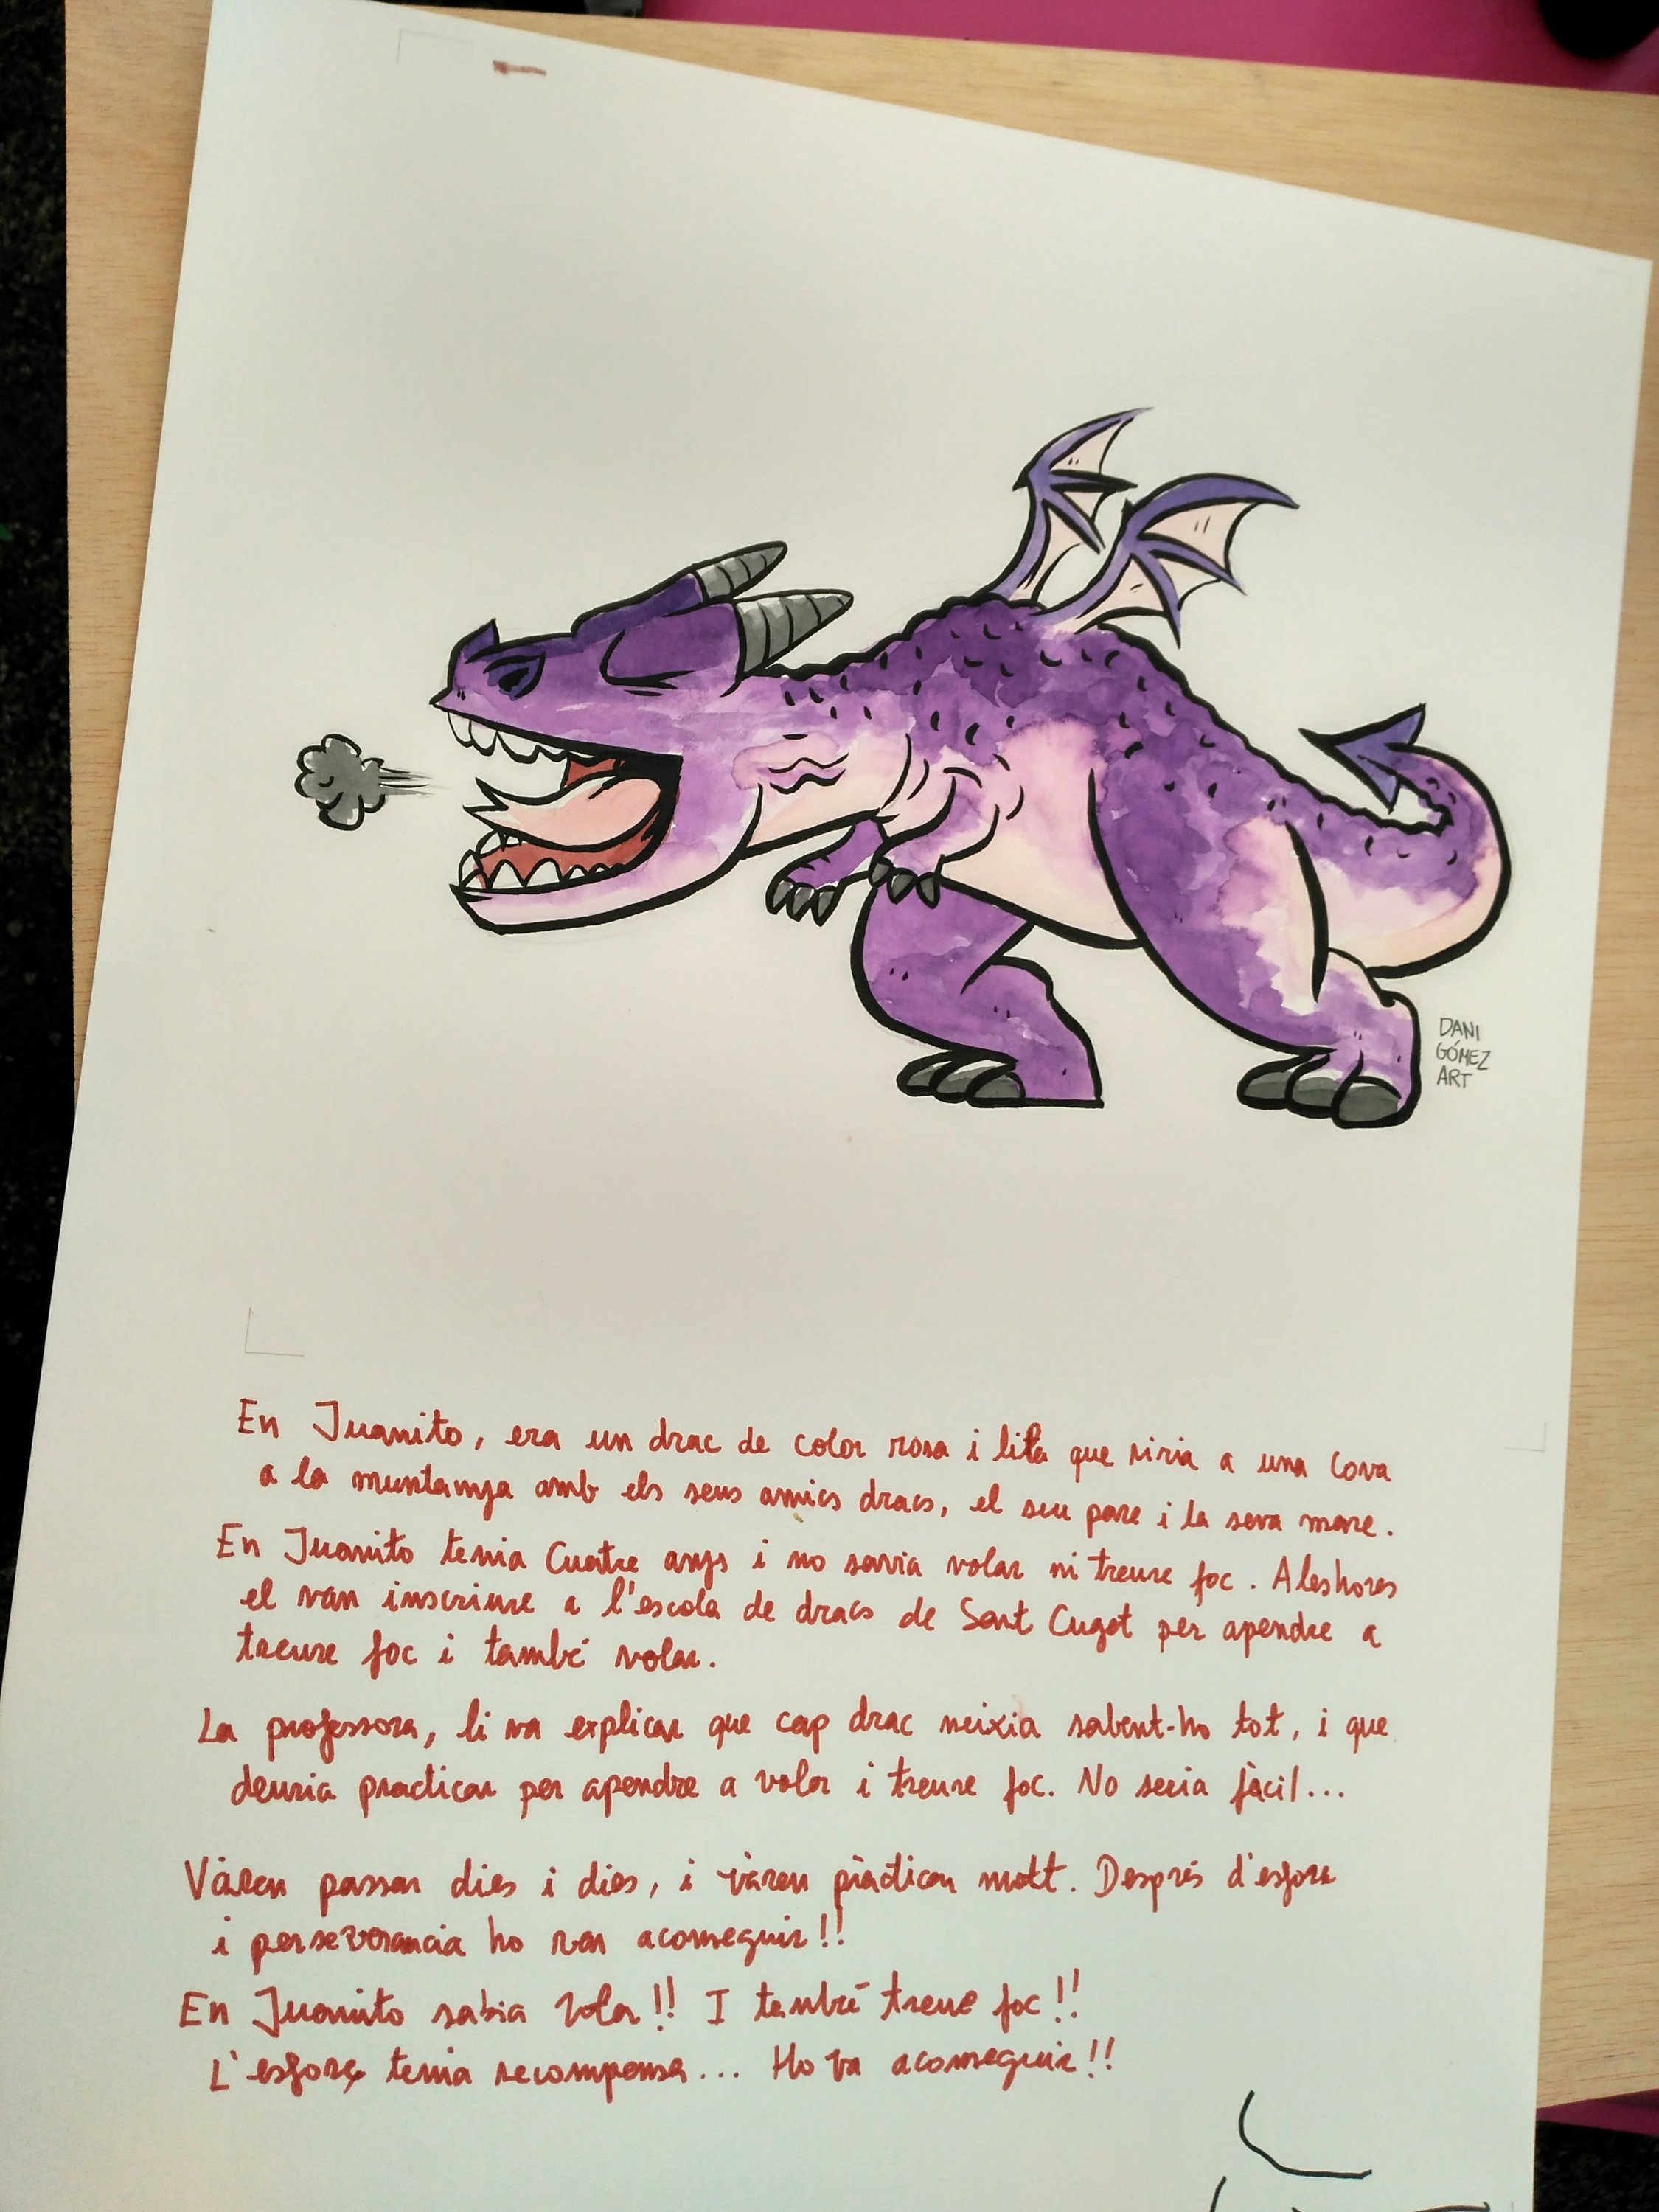 DANI
GÓMEZ
ART
En Juanito, era un drac de color rosa i lila que vivia a una cova
a la muntanya amb els seus amics dracs, el seu pare i la seva mare.
En Juanito tenia Cuatre anys i no savia volar ni treure foc. Aleshores
el van inscriure a l'escola de dracs de Sant Cugat per apendre a
treure foc i també volar.
La professora, li va explicar que cap drac neixia sabent-ho tot, i que
deuria practicar per apendre a volar i treure foc. No seria fàcil...
Vàren passar dies i dies, i vàren pràcticar molt. Després d'esforç
i perseverancia ho van aconseguir!!
En Juanito sabia volar!! I també treure foc!!
L'esforç tenia recompensa... Ho va aconseguir!!